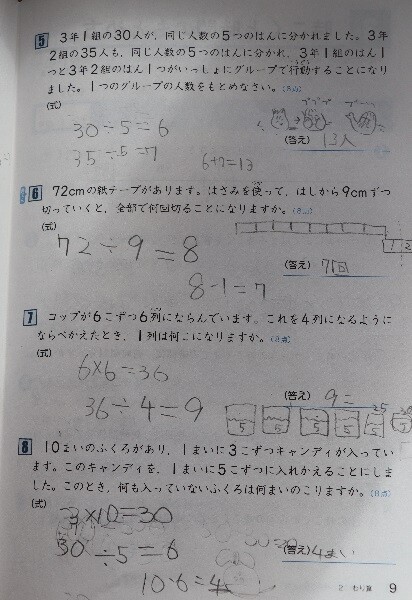 5 3年1組の30人が、同じ人数の5つのはんに分かれました。3年
2組の35人も、同じ人数の5つのはんに分かれ、3年1組のはん1
つと3年2組のはん1つがいっしょにグループで行動することになり
ました。1つのグループの人数をもとめなさい。(8点)
(式)
30÷5=6
35÷5=7
6+7=13
(答え) 13人
6 72cmの紙テープがあります。はさみを使って、はしから9cmずつ
切っていくと、全部で何回切ることになりますか。(8点)
(式)
72÷9=8
8-1=7
(答え) 7回
7 コップが6こずつ6列にならんでいます。これを4列になるように
ならべかえたとき、1列は何こになりますか。(8点)
(式)
6×6=36
36÷4=9
(答え) 9こ
5 5 5 5 5 5
25 30
8 10まいのふくろがあり、1まいに3こずつキャンディが入ってい
ます。このキャンディを、1まいに5こずつに入れかえることにしま
した。このとき、何も入っていないふくろは何まいのこりますか。(8点)
(式)
3×10=30
30÷5=6
10-6=4
(答え) 4まい
2 わり算 9